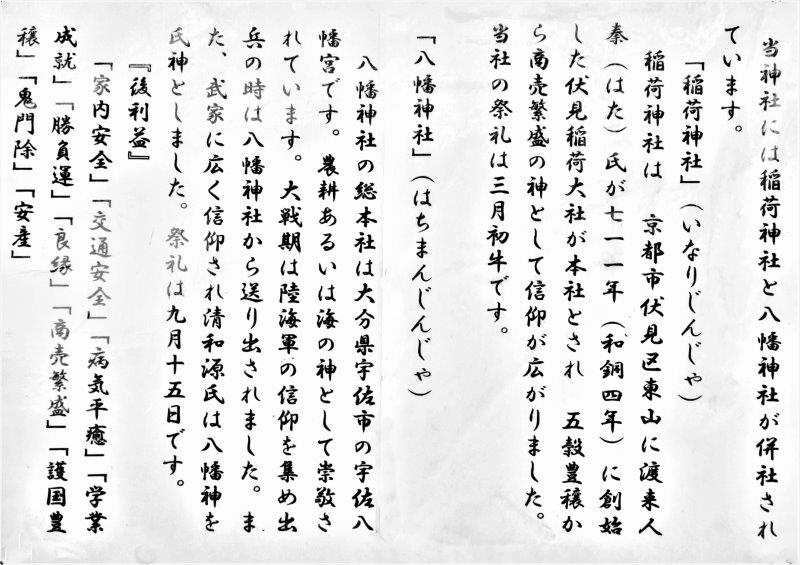 当神社には稲荷神社と八幡神社が併社され
ています。
「稲荷神社」（いなりじんじゃ）
稲荷神社は　京都市伏見区東山に渡来人
秦（はた）氏が七一一年（和銅四年）に創始
した伏見稲荷大社が本社とされ　五穀豊穣か
ら商売繁盛の神として信仰が広がりました。
当社の祭礼は三月初牛です。
「八幡神社」（はちまんじんじゃ）
八幡神社の総本社は大分県宇佐市の宇佐八
幡宮です。農耕あるいは海の神として崇敬さ
れています。大戦期は陸海軍の信仰を集め出
兵の時は八幡神社から送り出されました。ま
た、武家に広く信仰され清和源氏は八幡神を
氏神としました。祭礼は九月十五日です。
『後利益』
「家内安全」「交通安全」「病気平癒」「学業
成就」「勝負運」「良縁」「商売繁盛」「護国豊
穣」「鬼門除」「安産」